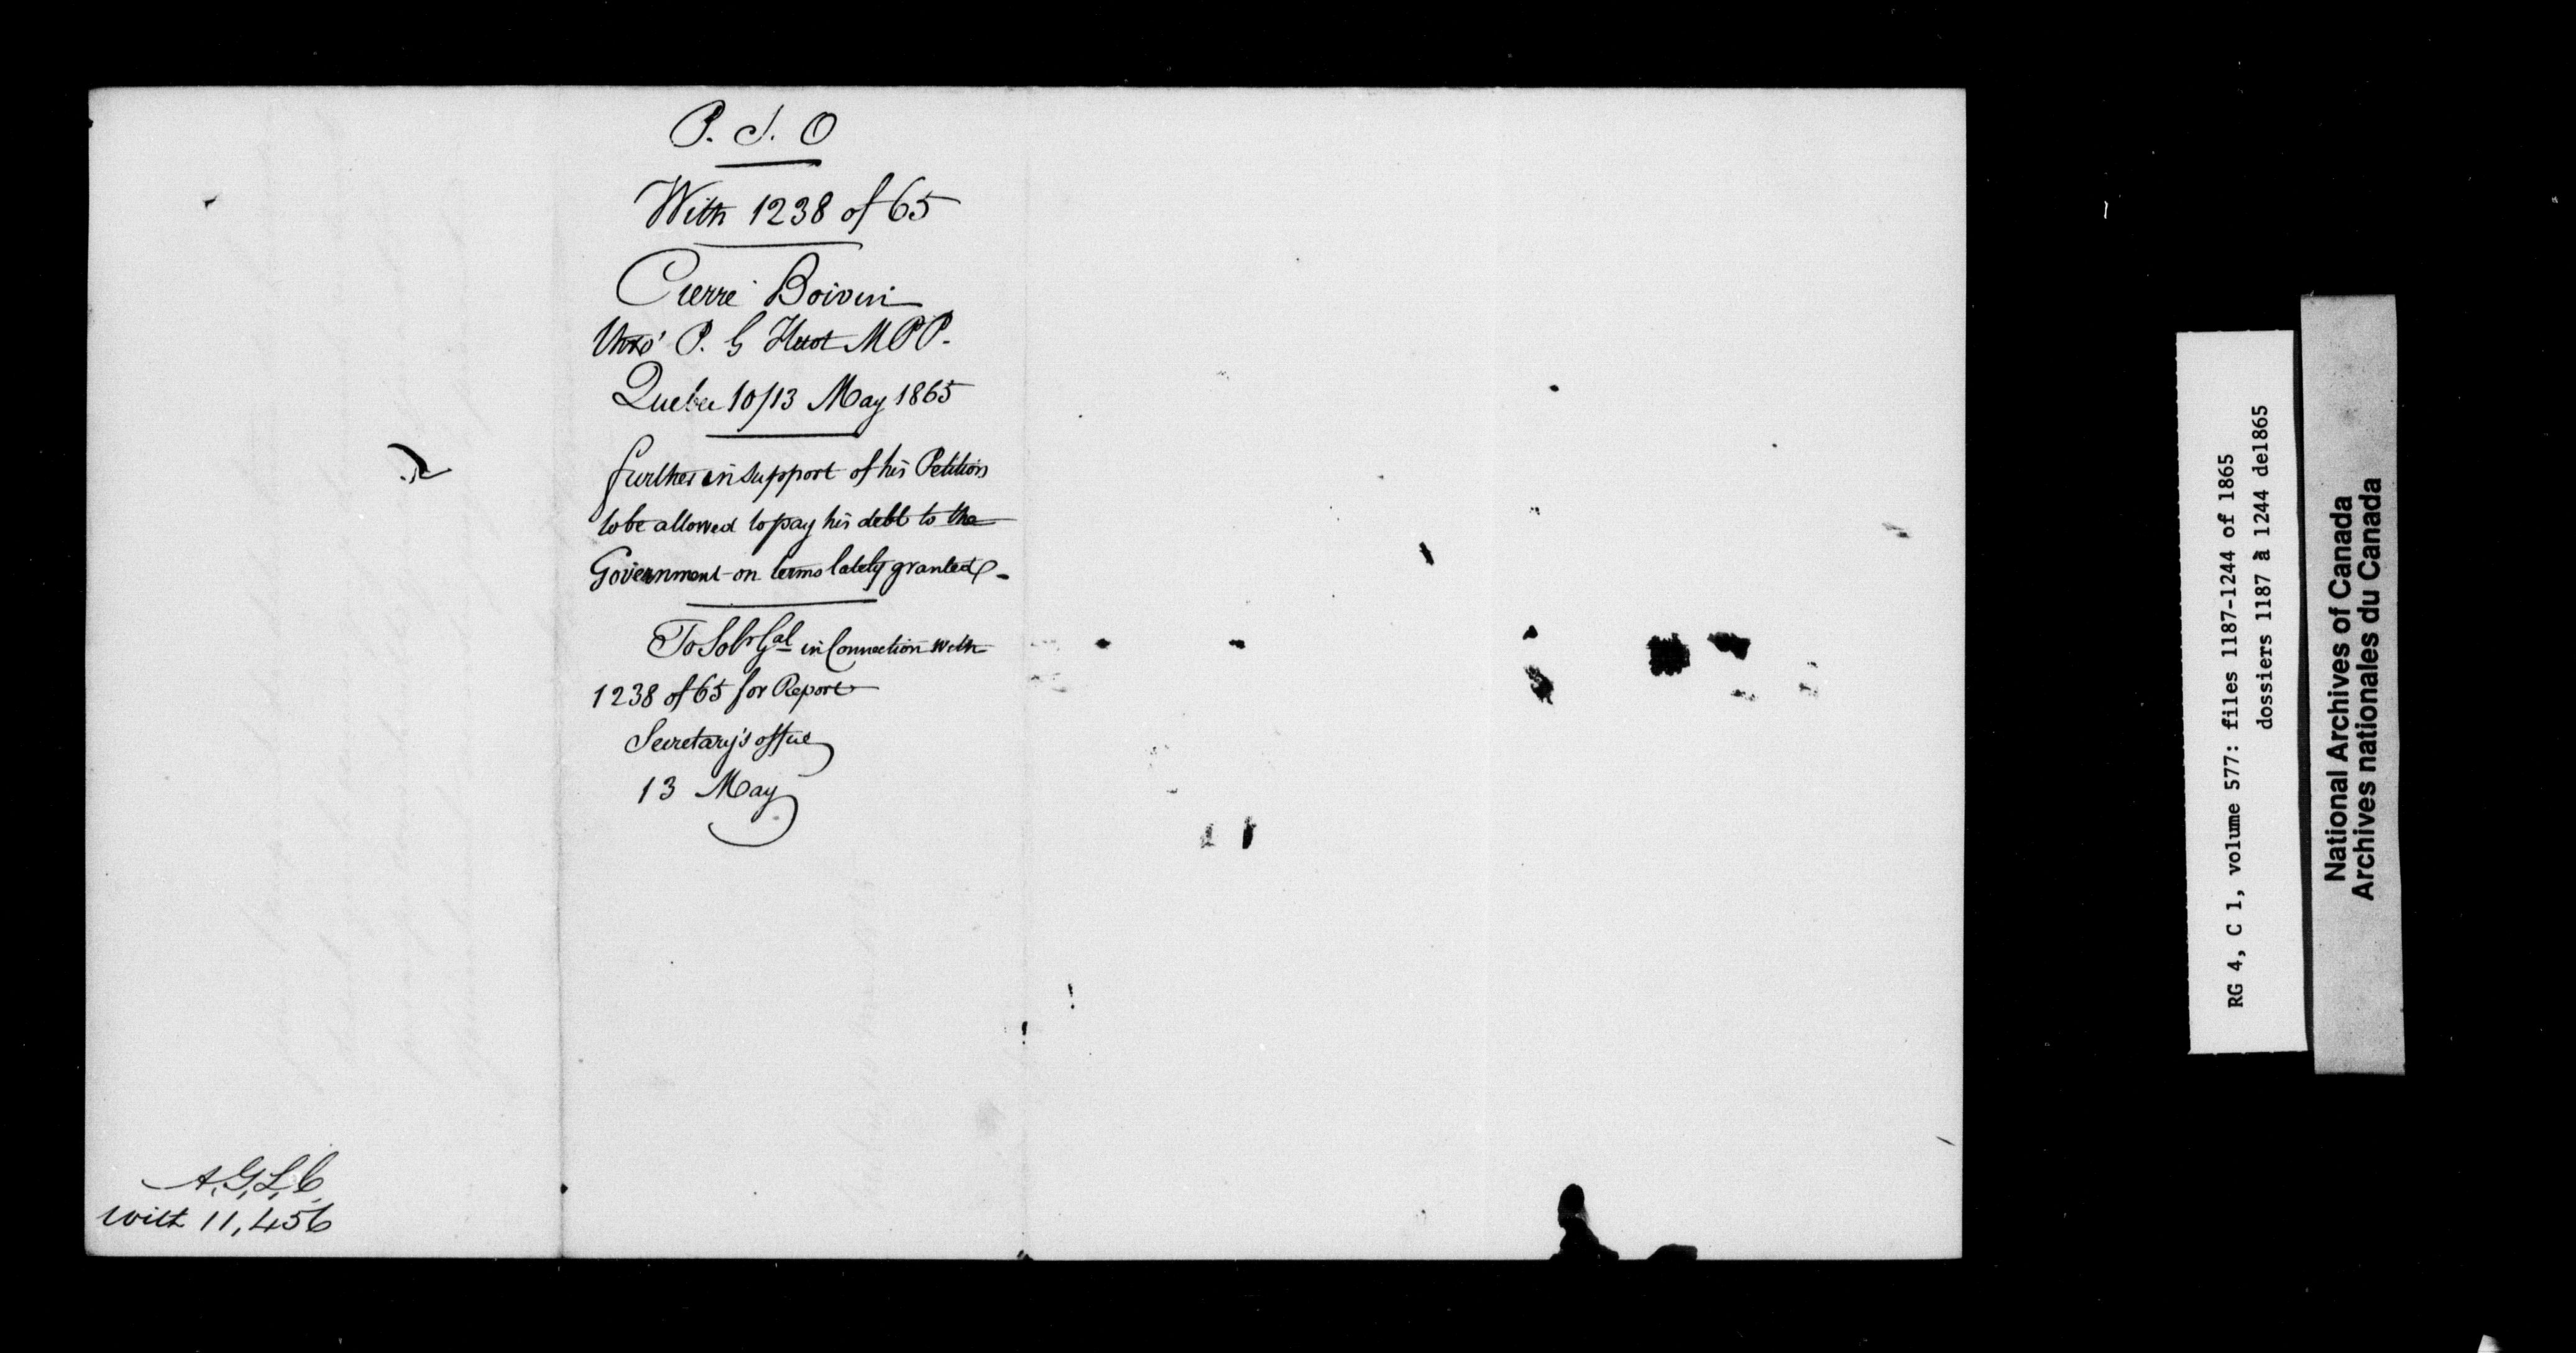 P. S. O
With 1238 of 65
Pierre Boivin
thro' P. G Huot MPP.
Quebec 10/13 May 1865
further in support of his Petition
to be allowed to pay his debt to the
Government on terms lately granted.
To Solr Gal in Connection with
1238 of 65 for Report
Secretary's office
13 May
A. G. L. C.
with 11,456
RG 4, C 1, volume 577: files 1187-1244 of 1865
dossiers 1187 à 1244 de1865
National Archives of Canada
Archives nationales du Canada